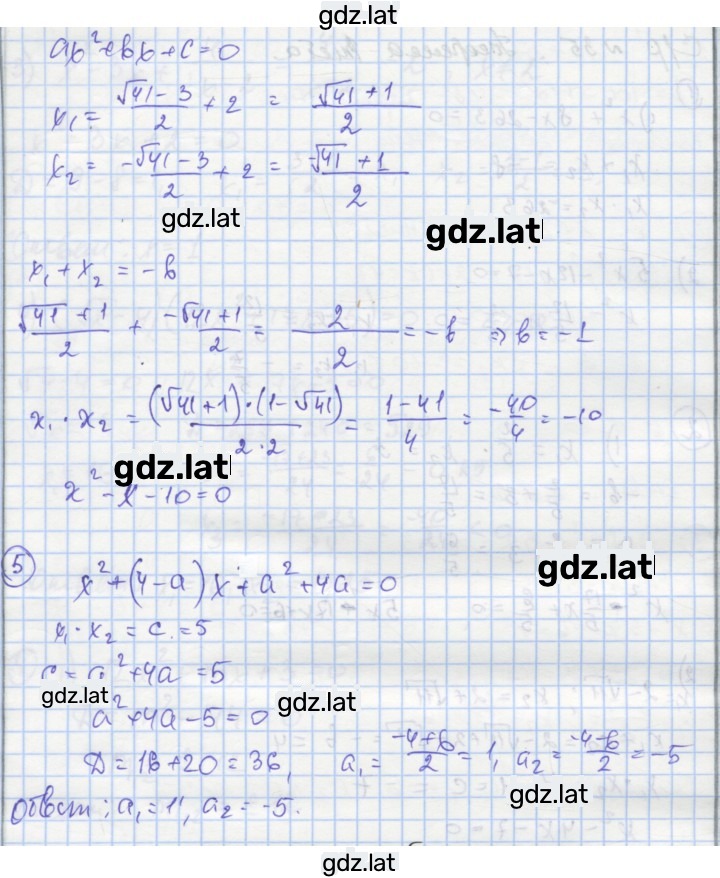 gdz.lat
ab² + bb + c = 0
x₁ = (√41 - 3)/2 + 2 = (√41 + 1)/2
x₂ = (-√41 - 3)/2 + 2 = (-√41 + 1)/2
gdz.lat
gdz.lat
x₁ + x₂ = -b
(√41 + 1)/2 + (-√41 + 1)/2 = 2/2 = -b ⇒ b = -1
x₁ · x₂ = ((√41 + 1) · (1 - √41))/(2 · 2) = (1 - 41)/4 = -40/4 = -10
gdz.lat
x² - x - 10 = 0
gdz.lat
5 x² + (4 - a)x + a² + 4a = 0
x₁ · x₂ = c = 5
c = a² + 4a = 5
gdz.lat
gdz.lat
a² + 4a - 5 = 0
D = 16 + 20 = 36, a₁ = (-4 + 6)/2 = 1, a₂ = (-4 - 6)/2 = -5
gdz.lat
Ответ: a₁ = 1, a₂ = -5.
gdz.lat